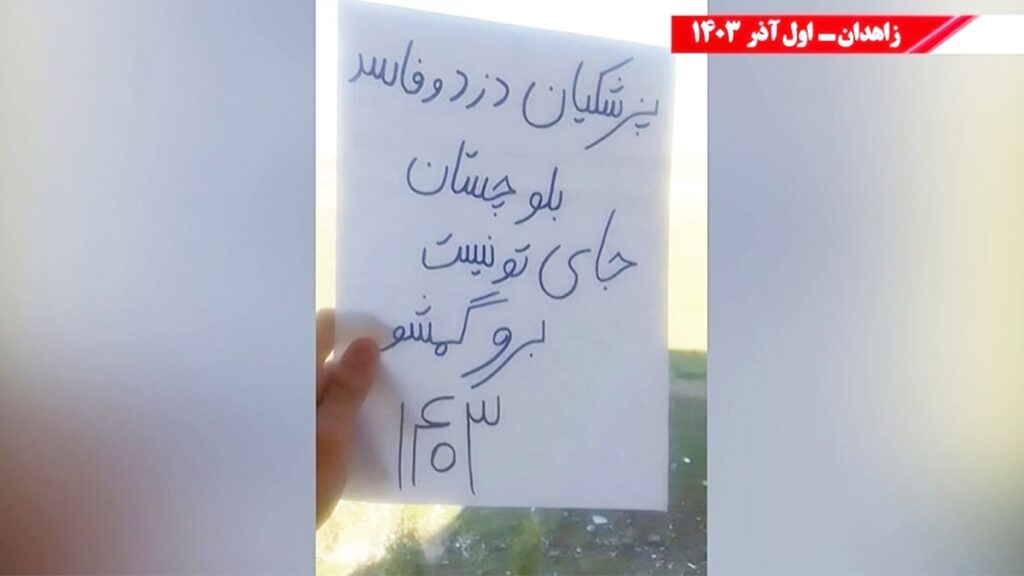 زاهدان - اول آذر ۱۴۰۳
پزشکیان دزد و فاسد
بلوچستان
جای تو نیست
برو گمشو
۱۴۰۳